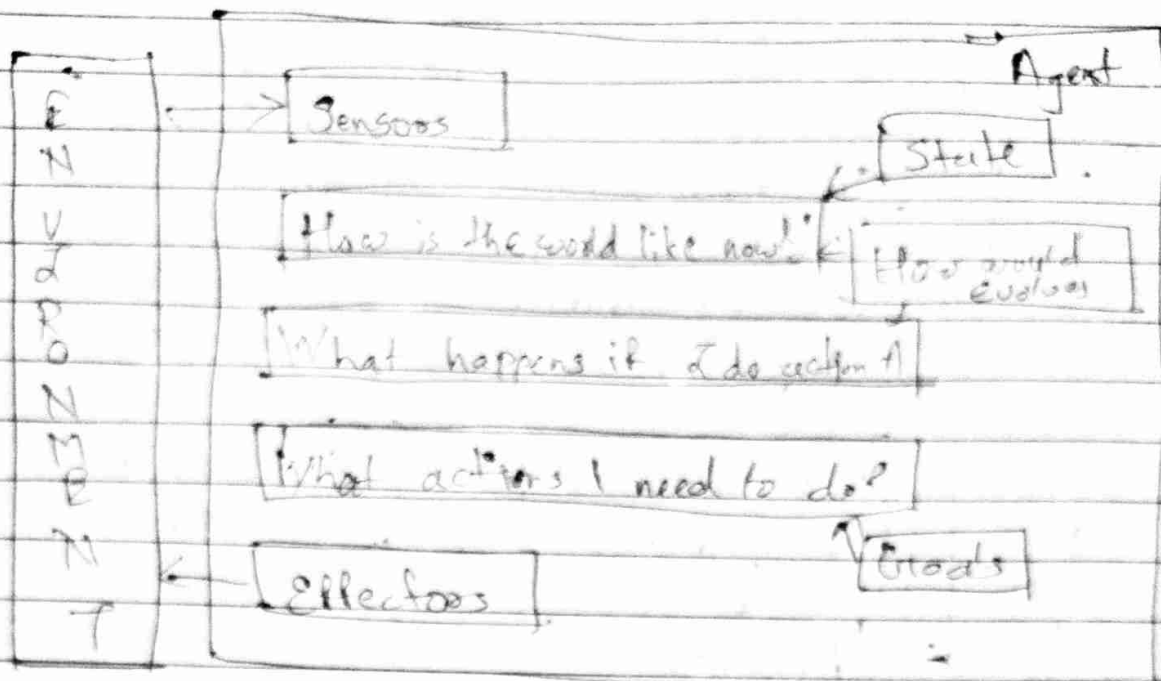 Agent
ENVIRONMENT
Sensors
State
How is the world like now?
How world
evolves
What happens if I do action A
What actions I need to do?
Goals
Effectors